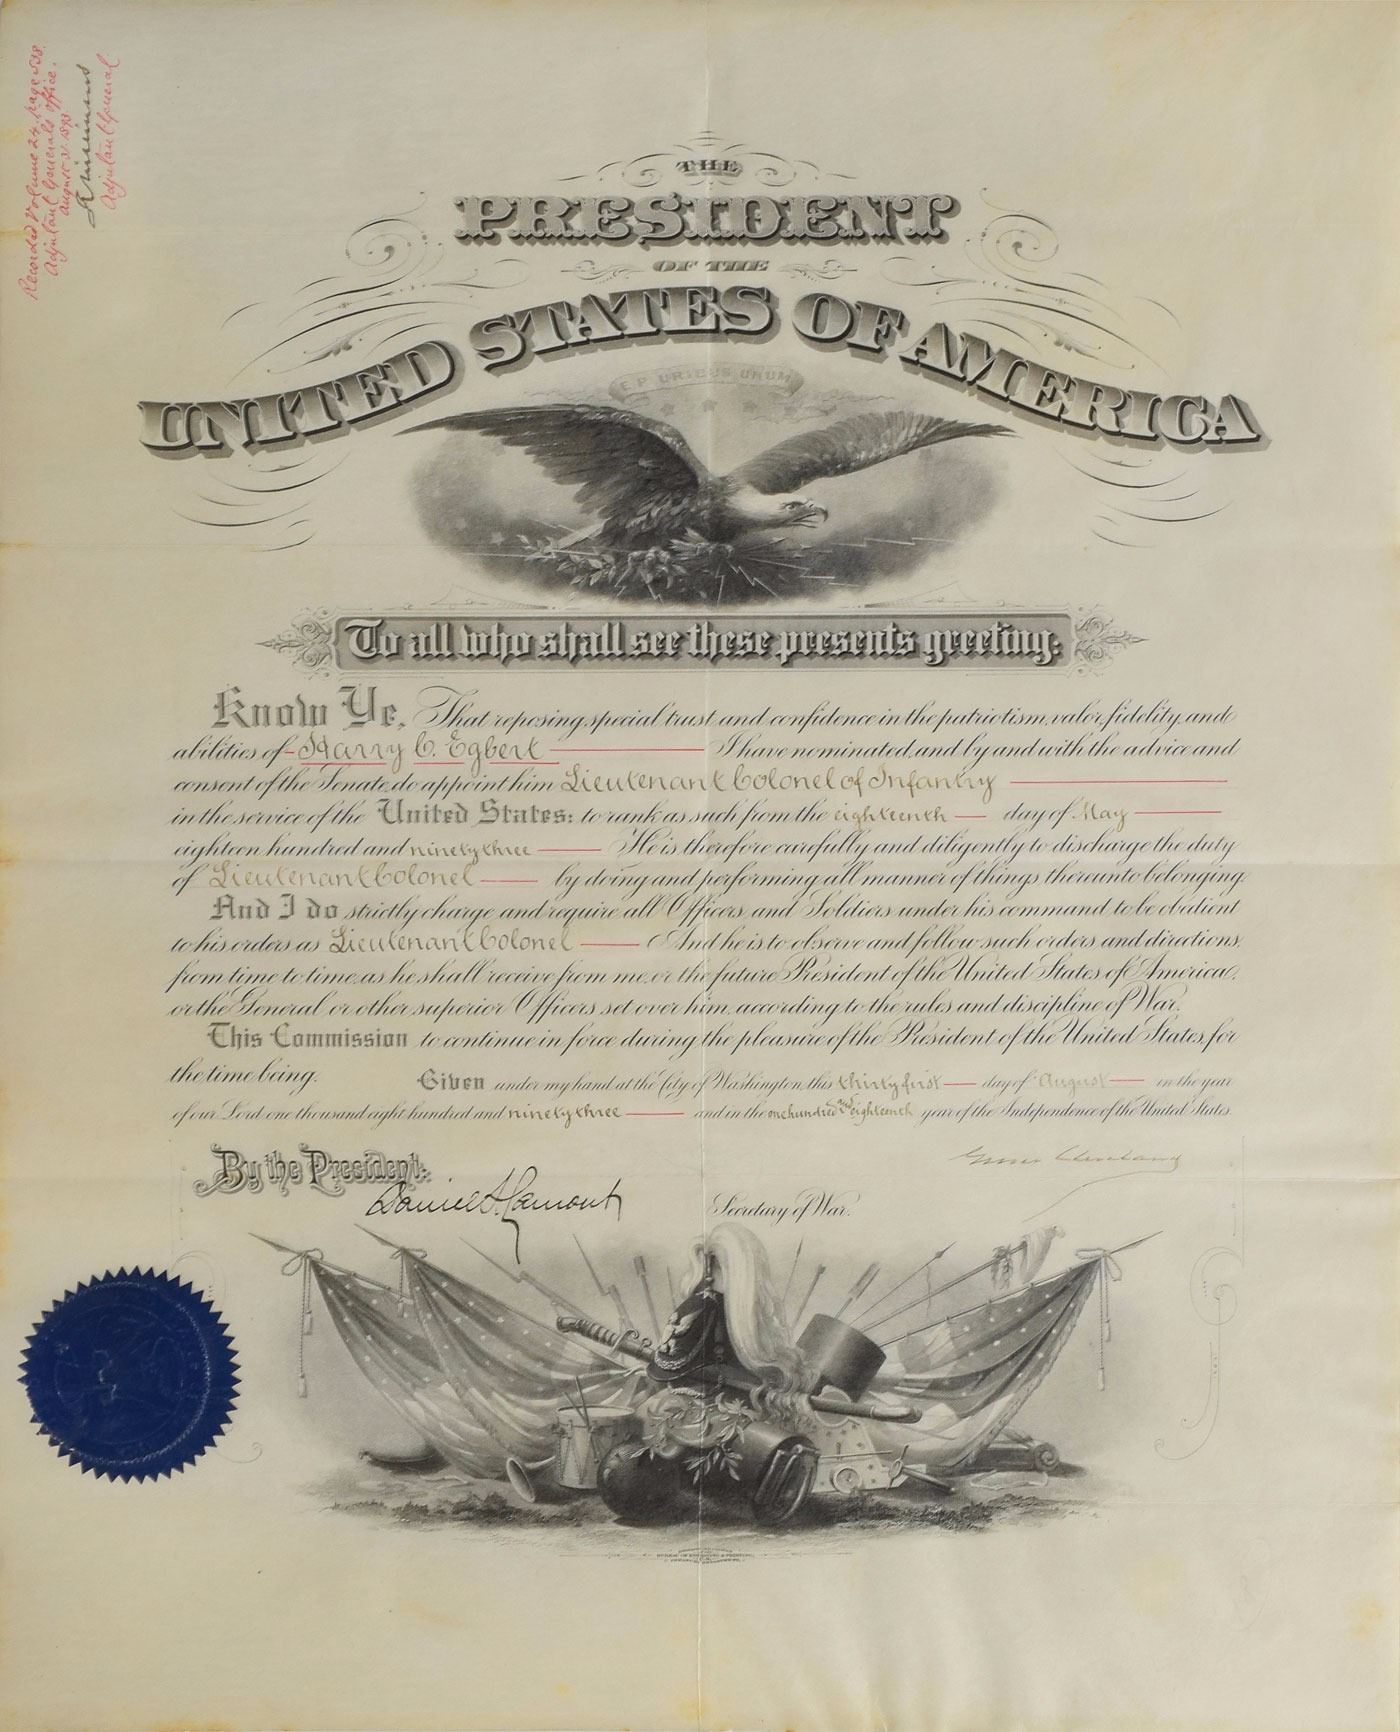 Recorded Volume 24. page 538.
Adjutant General's Office.
August 1893.
Adjutant General
THE
PRESIDENT
OF THE
UNITED STATES OF AMERICA
E PLURIBUS UNUM
To all who shall see these presents greeting:
Know Ye, That reposing special trust and confidence in the patriotism, valor, fidelity, and
abilities of Harry C. Egbert I have nominated, and by and with the advice and
consent of the Senate, do appoint him Lieutenant Colonel of Infantry
in the service of the United States: to rank as such from the eighteenth day of May
eighteen hundred and ninety three He is therefore carefully and diligently to discharge the duty
of Lieutenant Colonel by doing and performing all manner of things thereunto belonging.
And I do strictly charge and require all Officers and Soldiers under his command to be obedient
to his orders as Lieutenant Colonel And he is to observe and follow such orders and directions,
from time to time, as he shall receive from me, or the future President of the United States of America,
or the General or other superior Officers set over him, according to the rules and discipline of War.
This Commission to continue in force during the pleasure of the President of the United States, for
the time being. Given under my hand at the City of Washington, this thirty first day of August in the year
of our Lord, one thousand eight hundred and ninety three and in the one hundred and eighteenth year of the Independence of the United States.
Grover Cleveland
By the President:
Daniel S. Lamont
Secretary of War.
BUREAU OF ENGRAVING & PRINTING